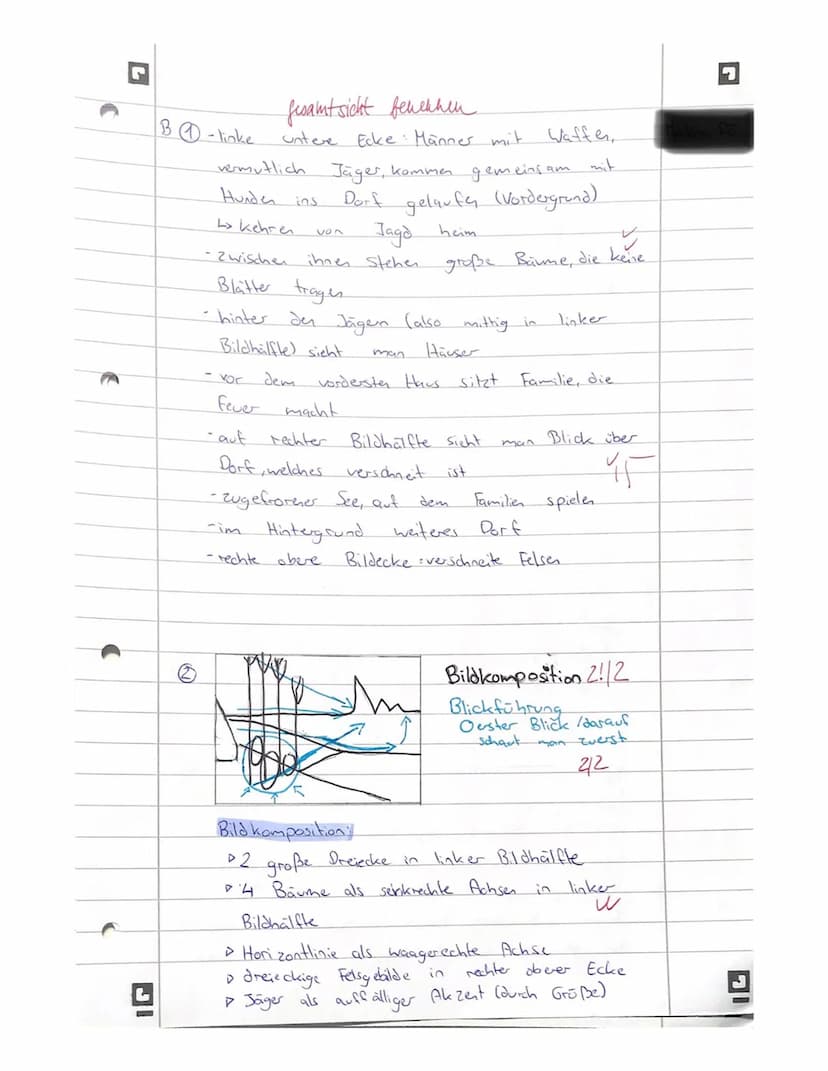 Gesamtsicht
B ① - linke untere Ecke: Männer mit Waffen,
vermutlich Jäger, kommen gemeinsam mit
Hunden ins Dorf gelaufen (Vordergrund)
↳ kehren von Jagd heim
- zwischen ihnen stehen große Bäume, die keine
Blätter tragen
- hinter den Jägern (also mittig in linker
Bildhälfte) sieht man Häuser
- vor dem vordersten Haus sitzt Familie, die
Feuer macht
- auf rechter Bildhälfte sieht man Blick über
Dorf, welches verschneit ist
- zugefrorener See, auf dem Familien spielen
- im Hintergrund weiteres Dorf
- rechte obere Bildecke: verschneite Felsen
②
Bildkomposition 2!/2
Blickführung
O erster Blick / darauf
schaut man zuerst
2/2
Bildkomposition:
▹ 2 große Dreiecke in linker Bildhälfte
▹ 4 Bäume als senkrechte Achsen in linker
Bildhälfte
▹ Horizontlinie als waagerechte Achse
▹ dreieckige Felsgebilde in rechter oberer Ecke
▹ Jäger als auffälliger Akzent (durch Größe)